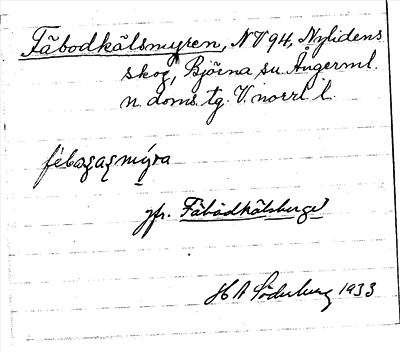 Fäbodkälsmyren, NV94, Nylidens
skog, Björna sn. Ångerml.
n. doms. tg. V. norrl l.
jfr. Fäbodkälsberget
H A Söderberg 1933